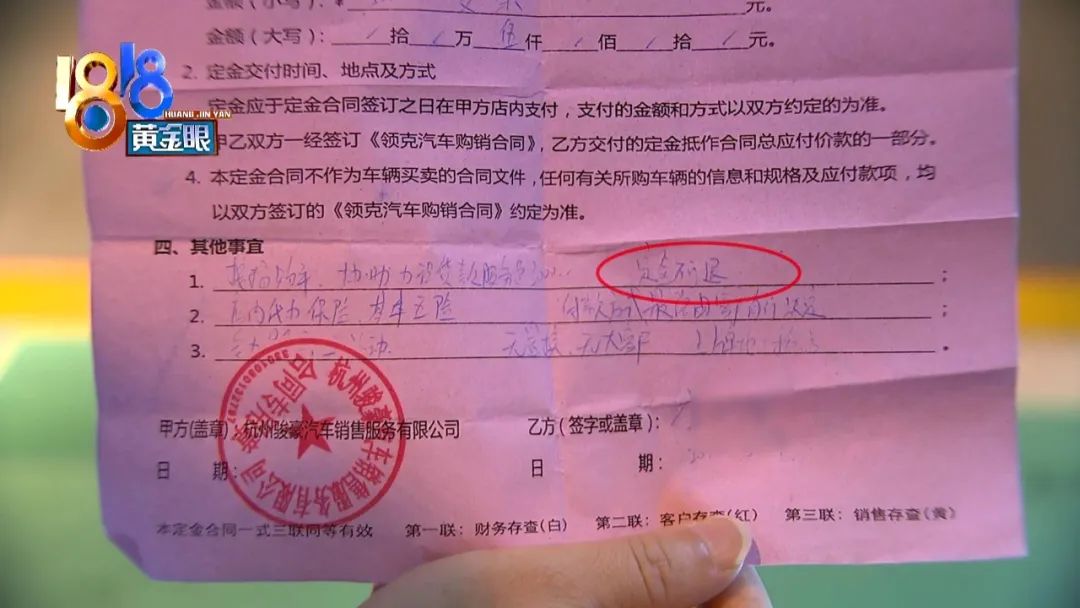 金额(小写):¥ 元。
金额(大写): / 拾 / 万 伍 仟 / 佰 / 拾 / 元。
1818
HUANG JIN YAN
黄金眼
2. 定金交付时间、地点及方式
定金应于定金合同签订之日在甲方店内支付,支付的金额和方式以双方约定的为准。
甲乙双方一经签订《领克汽车购销合同》,乙方交付的定金抵作合同总应付价款的一部分。
4. 本定金合同不作为车辆买卖的合同文件,任何有关所购车辆的信息和规格及应付款项,均
以双方签订的《领克汽车购销合同》约定为准。
四、其他事宜
1. 协助办理贷款服务 定金不退 ;
2. 店内代办保险, 付款方式 ;
3. 。
甲方(盖章):杭州骏豪汽车销售服务有限公司 乙方(签字或盖章):
日 期: 日 期:
杭州骏豪汽车销售服务有限公司
合同专用章
本定金合同一式三联同等有效 第一联:财务存查(白) 第二联:客户存查(红) 第三联:销售存查(黄)